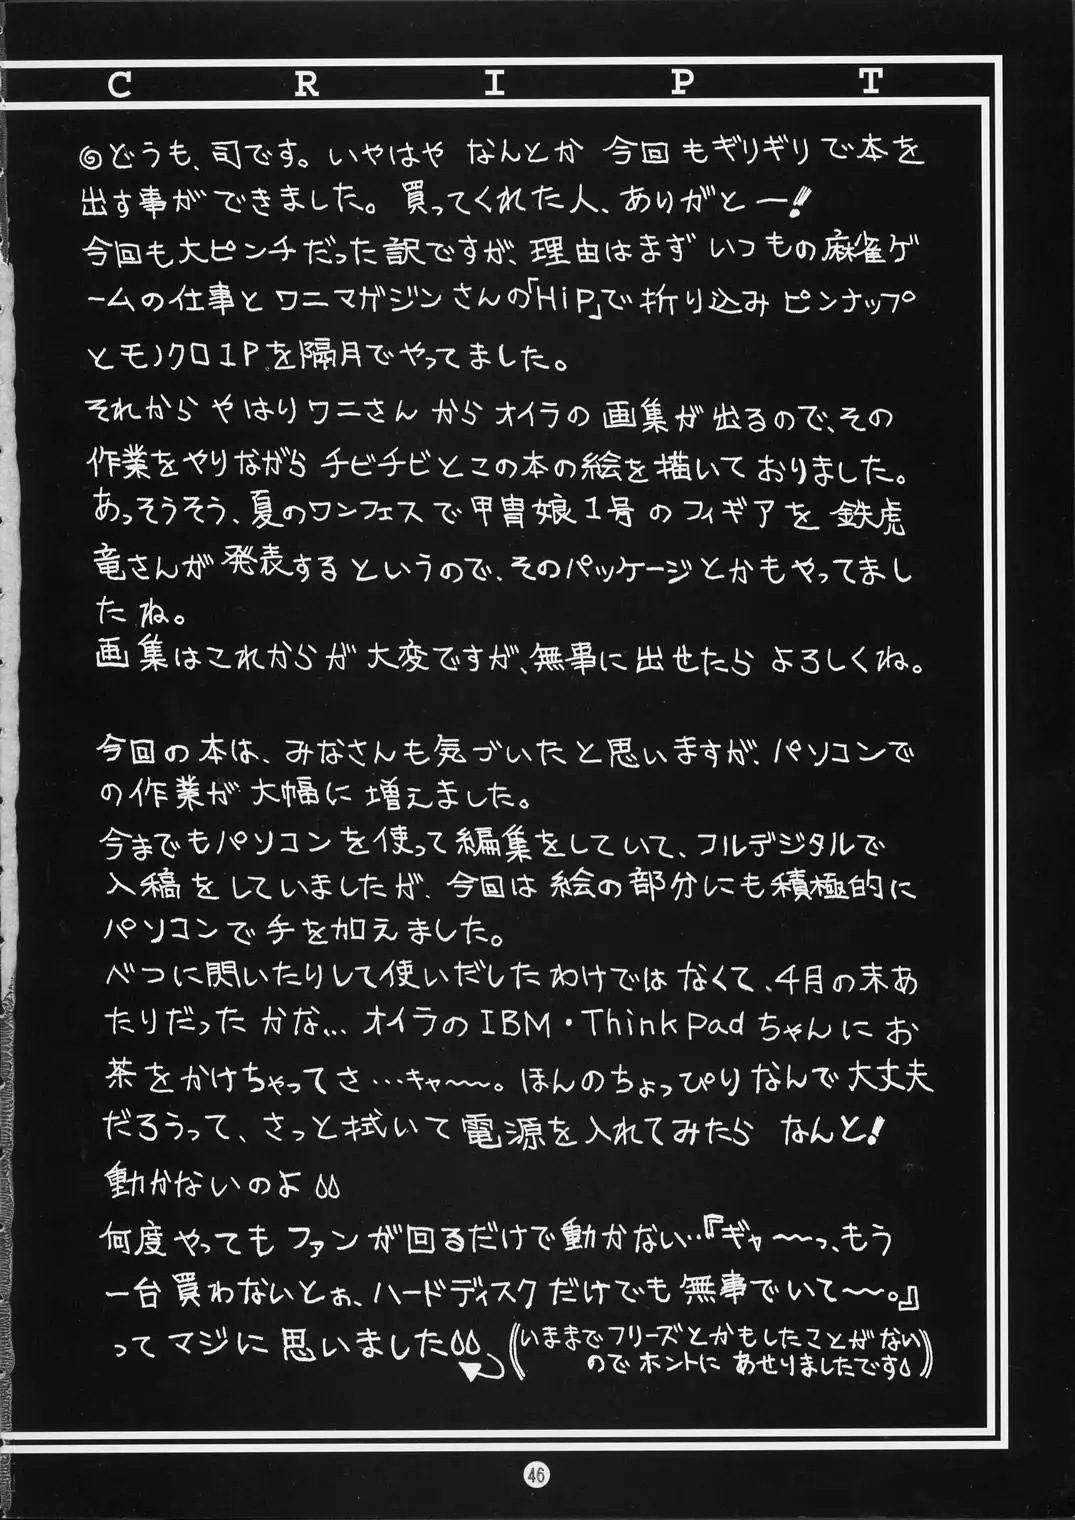 CRIPT
◎どうも、司です。いやはや なんとか 今回もギリギリで本を
出す事ができました。買ってくれた人、ありがとー!!
今回も大ピンチだった訳ですが、理由はまず いつもの麻雀ゲ
ームの仕事と ワニマガジンさんの「HiP」で折り込みピンナップ
とモノクロ1Pを隔月でやってました。
それから やはりワニさん からオイラの画集が出るので、その
作業をやりながら チビチビとこの本の絵を描いておりました。
あっそうそう、夏のワンフェスで甲冑娘1号のフィギアを鉄虎
竜さんが発表するというので、そのパッケージとかもやってまし
たね。
画集はこれからが大変ですが、無事に出せたら よろしくね。
今回の本は、みなさんも気づいたと思いますが、パソコンで
の作業が大幅に増えました。
今までもパソコンを使って編集をしていて、フルデジタルで
入稿をしていましたが、今回は絵の部分にも積極的に
パソコンで手を加えました。
べつに閃いたりして使いだしたわけではなくて、4月の末あ
たりだったかな... オイラのIBM・ThinkPadちゃんにお
茶をかけちゃってさ…キャ〜〜。ほんのちょっぴりなんで大丈夫
だろうって、さっと拭いて電源を入れてみたら なんと!
動かないのよ
何度やってもファンが回るだけで動かない…『ギャ〜〜っ、もう
一台買わないとぉ、ハードディスクだけでも無事でいて〜〜。』
ってマジに思いました
((いままでフリーズとかもしたことがない
のでホントにあせりましたです))
46